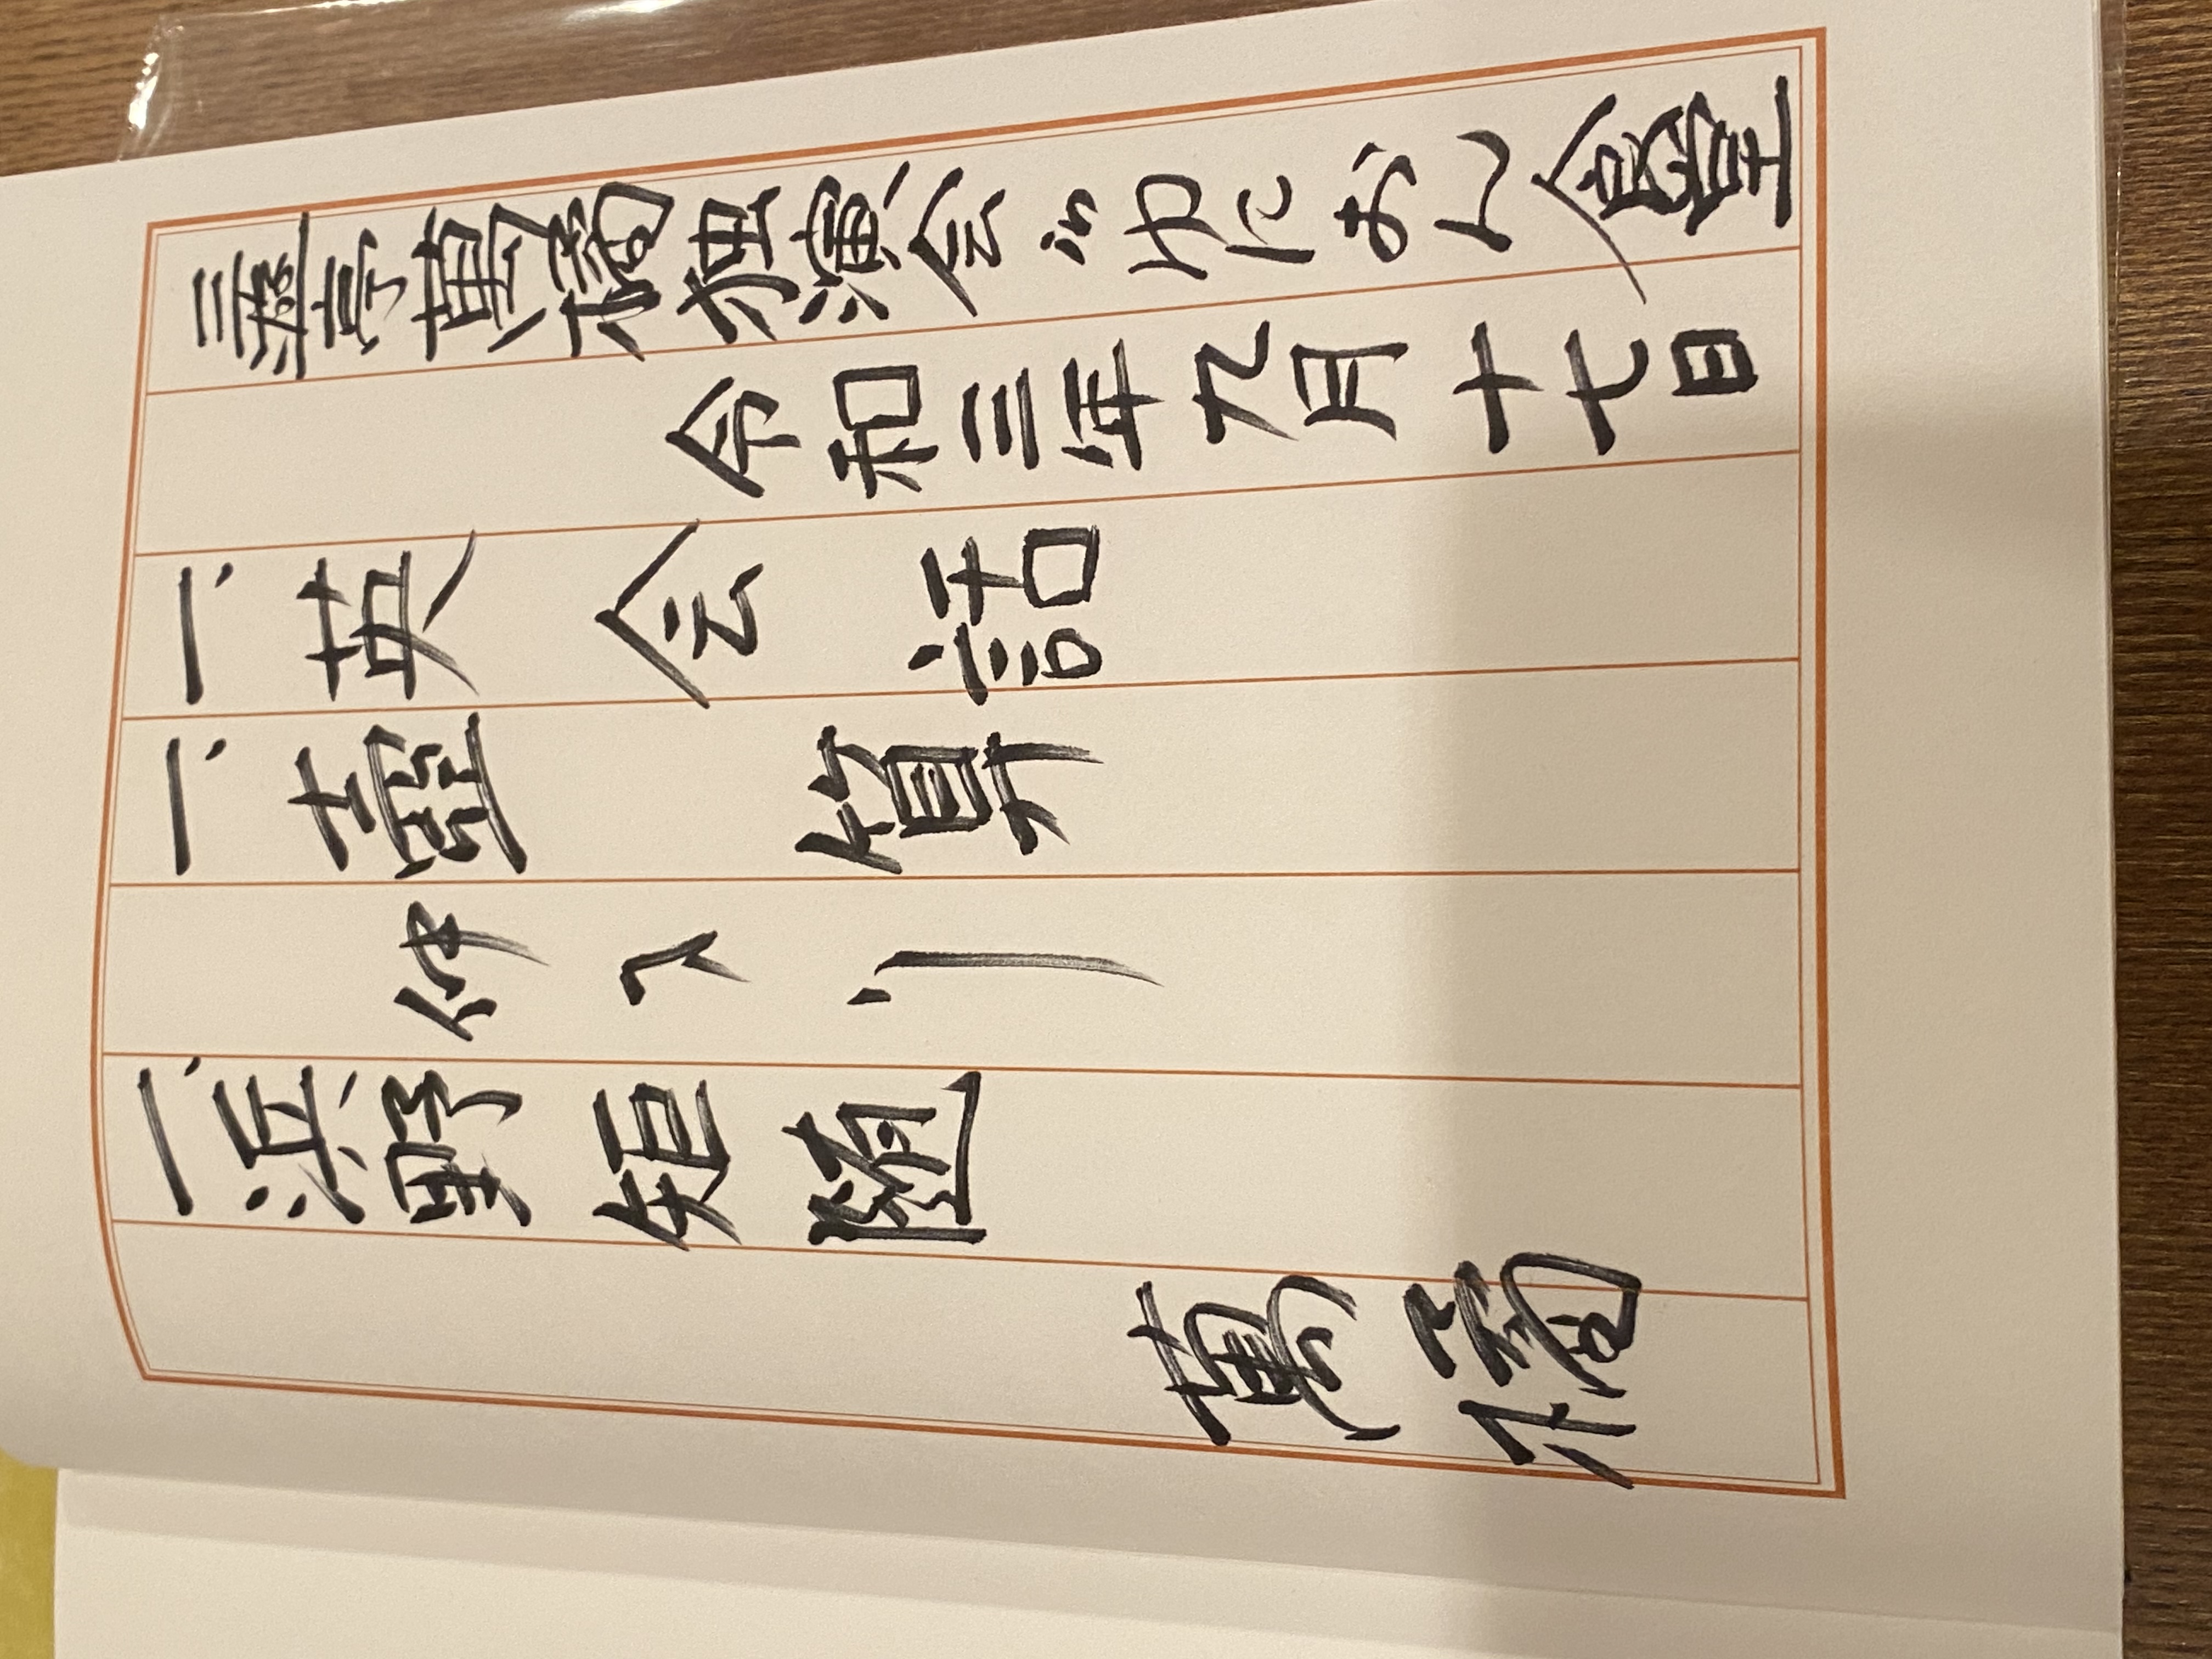 三遊亭萬橘独演会inゆにおん食堂
令和三年九月十七日
一、英会話
一、壺算
仲入り
一、浜野矩随
萬橘